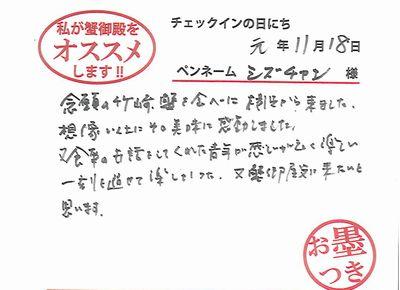 私が蟹御殿を
オススメ
します!!
チェックインの日にち
元年11月18日
ペンネーム シズチャン 様
念願の竹崎蟹を食べに 横浜から来ました。
想像以上にその美味に感動しました。
又食事のお世話をしてくれた青年が感じがよく楽しい
一刻を過せて楽しました。又蟹御殿に来たいと
思います。
お墨つき